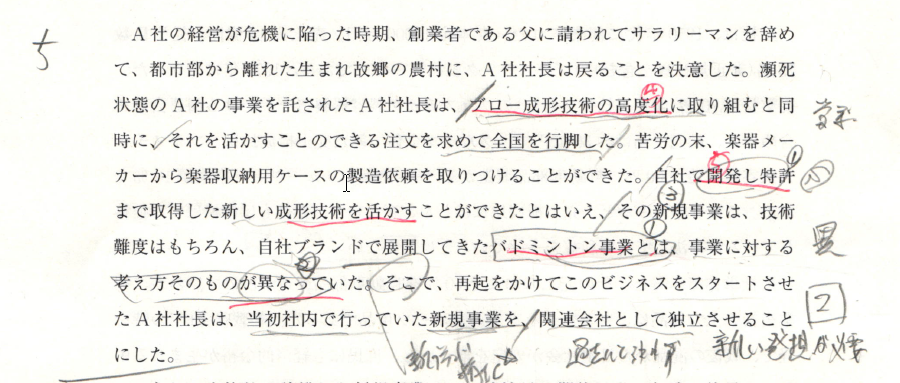 A社の経営が危機に陥った時期、創業者である父に請われてサラリーマンを辞め
て、都市部から離れた生まれ故郷の農村に、A社社長は戻ることを決意した。瀕死
状態のA社の事業を託されたA社社長は、ブロー成形技術の高度化に取り組むと同
時に、それを活かすことのできる注文を求めて全国を行脚した。苦労の末、楽器メー
カーから楽器収納用ケースの製造依頼を取りつけることができた。自社で開発し特許
まで取得した新しい成形技術を活かすことができたとはいえ、その新規事業は、技術
難度はもちろん、自社ブランドで展開してきたバドミントン事業とは、事業に対する
考え方そのものが異なっていた。そこで、再起をかけてこのビジネスをスタートさせ
たA社社長は、当初社内で行っていた新規事業を、関連会社として独立させること
にした。
5
④
⑤
①
③
①
②
異
2
新しい発想が必要